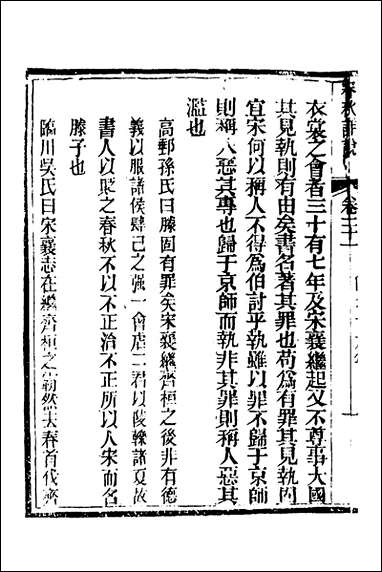 衣裳之會者三十有七年及宋襄繼起又不尊事大國
其見執則有由矣書名著其罪也苟爲有罪其見執固
宜宋何以稱人不得爲伯討乎執雖以罪不歸于京師
則稱人惡其專也歸于京師而執非其罪則稱人惡其
濫也
高郵孫氏曰滕固有罪矣宋襄繼齊桓之後非有德
義以服諸侯肆己之強一會虐二君以陵轢諸夏故
書人以貶之春秋不以不正治不正所以人宋而名
滕子也
臨川吳氏曰宋襄志在繼齊桓之霸然去春首伐齊